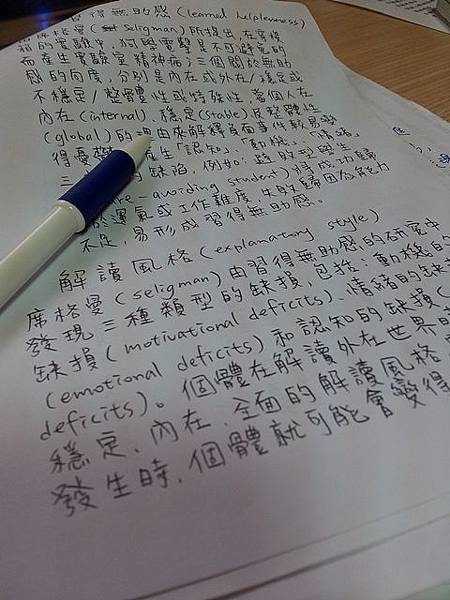 習得無助感 (learned helplessness)
席格曼 (Seligman) 所提出,在穿梭
箱的實驗中,狗對電擊是不可避免的
而產生實驗室精神病;三個關於無助
感的向度,分別是內在或外在/穩定或
不穩定/整體性或特殊性,當個人在
內在(internal)、穩定(stable)及整體性
(global)的理由來解釋負面事件較易變
得憂鬱 產生「認知」、「動機」、「情緒」
三 的缺陷,例如:避敗型學生
-avoiding student) 將成功歸
於運氣或工作難度,失敗歸因為能力
不足,易形成習得無助感。
解讀風格 (explanatory style)
席格曼 (seligman) 由習得無助感的研究中
發現三種類型的缺損,包括:動機的
缺損 (motivational deficits)、情緒的缺
(emotional deficits) 和認知的缺損 (
deficits)。個體在解讀外在世界時
穩定、內在、全面的解讀風格
發生時,個體就可能會變得